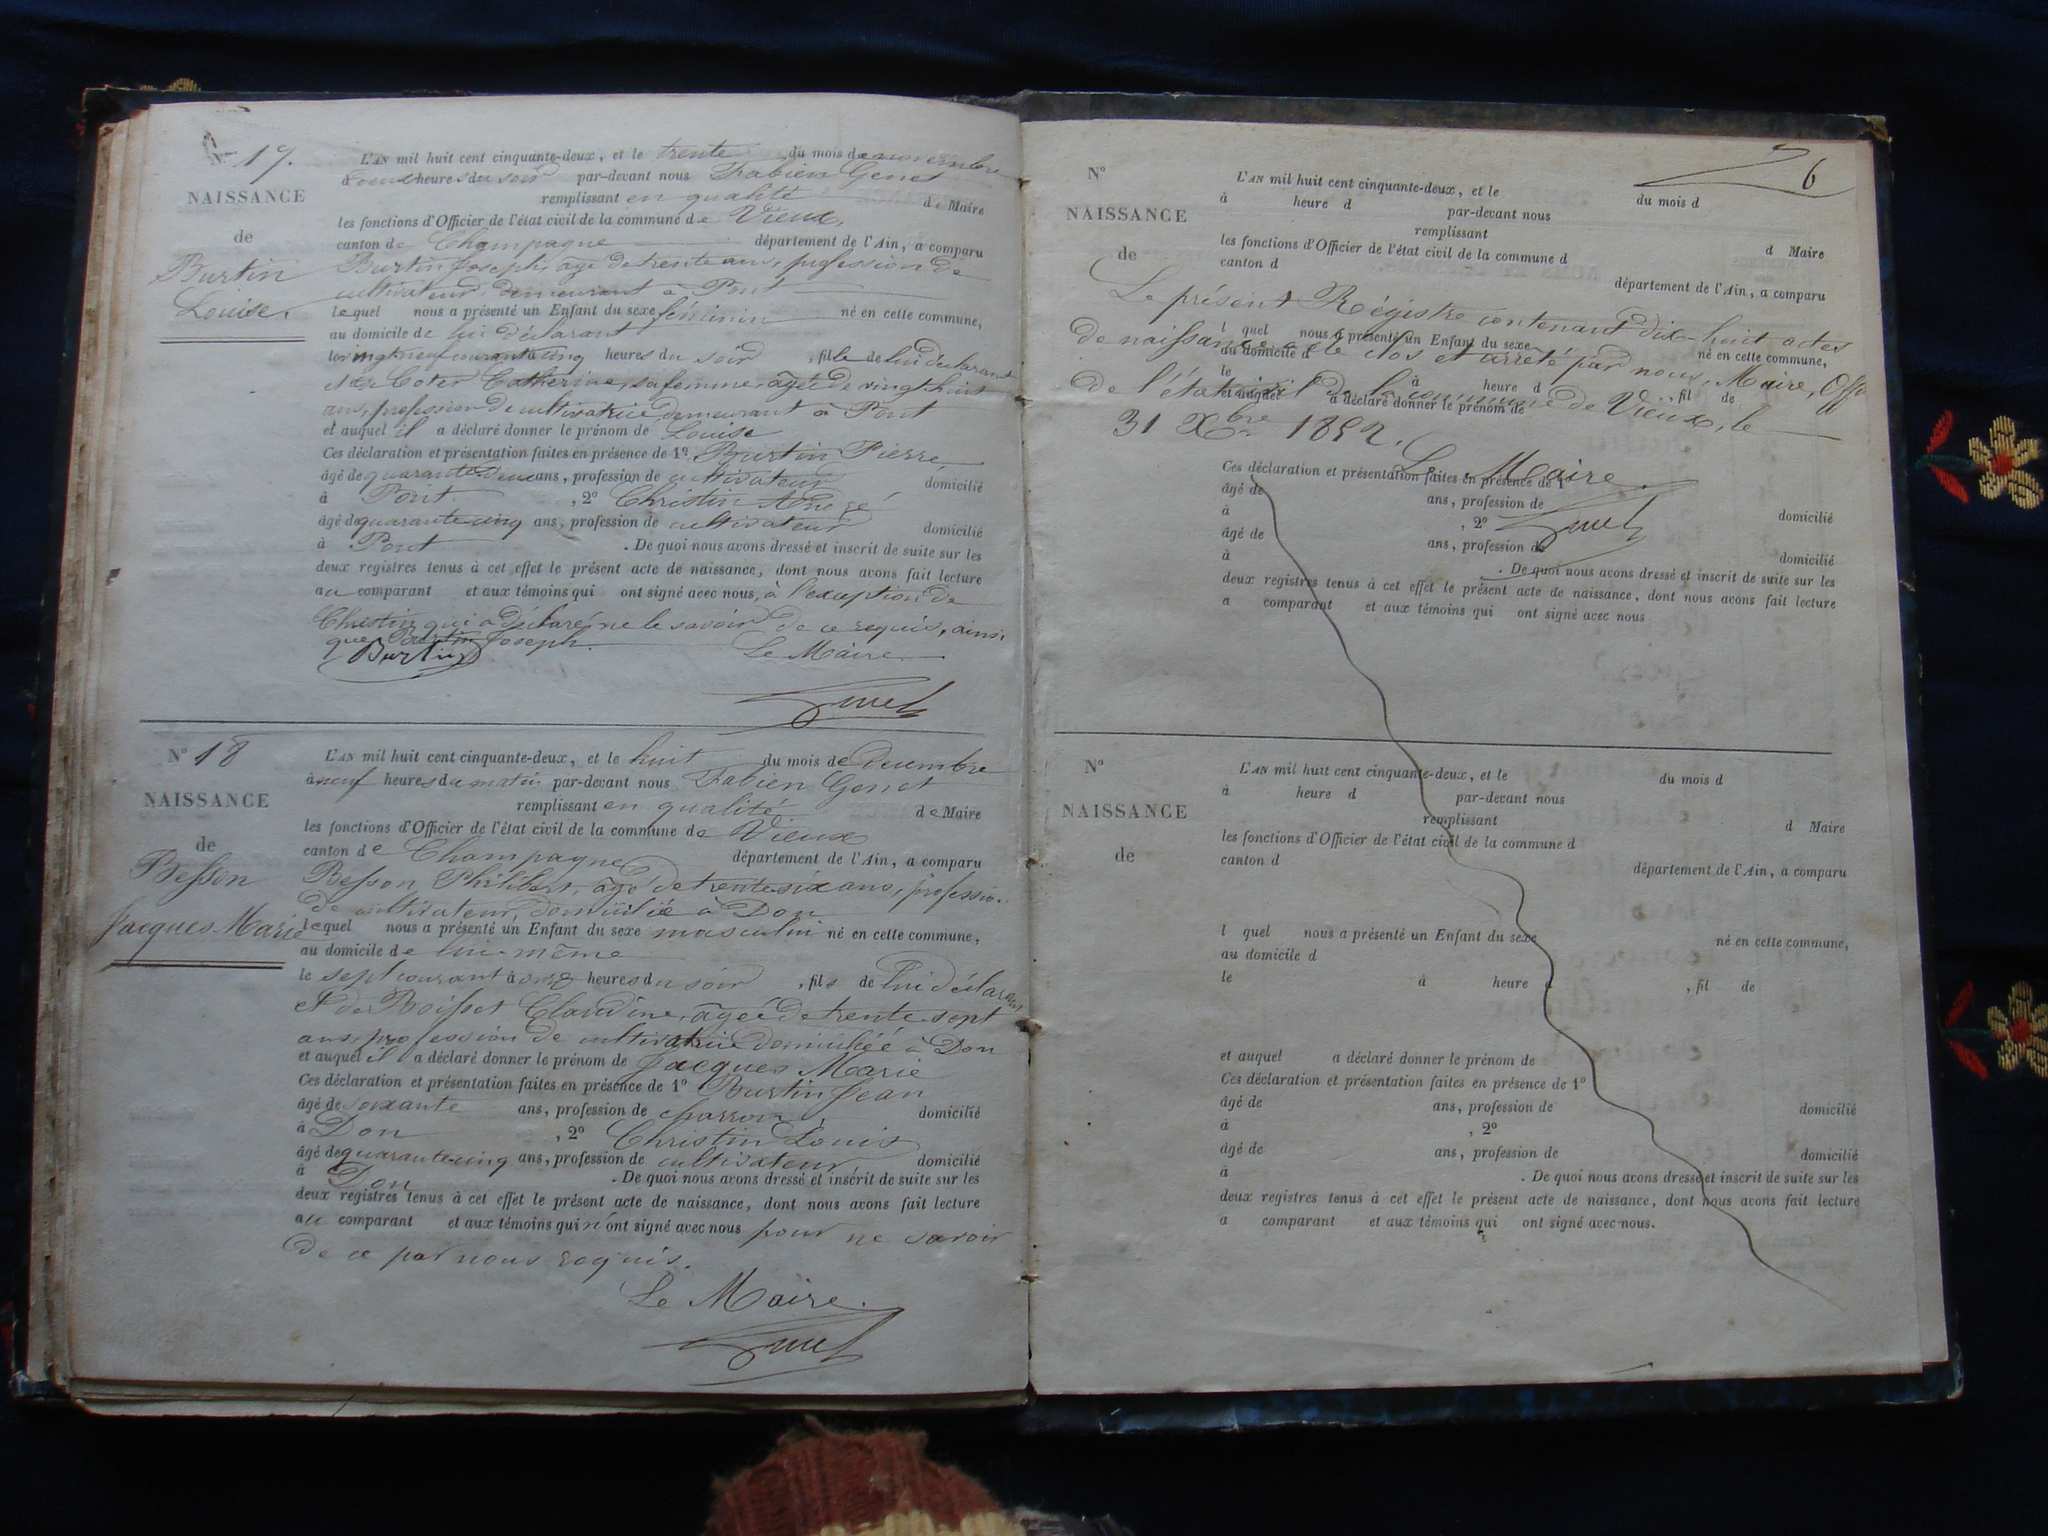 N° 17.
NAISSANCE
de
Burtin
Louise.
L'AN mil huit cent cinquante-deux, et le trente du mois de novembre
à heures du soir par-devant nous Fabien Genet
remplissant en qualité de Maire
les fonctions d'Officier de l'état civil de la commune de Vieux,
canton de Champagne département de l'Ain, a comparu
Burtin Joseph, âgé de trente ans, profession de
cultivateur, demeurant à Pont
lequel nous a présenté un Enfant du sexe féminin né en cette commune,
au domicile de lui déclarant
le vingt neuf courant à cinq heures du soir, fille de lui déclarant
et de Coter Catherine, sa femme, âgée de vingt huit
ans, profession de cultivatrice demeurant à Pont
et auquel il a déclaré donner le prénom de Louise
Ces déclaration et présentation faites en présence de 1° Burtin Pierre,
âgé de quarante deux ans, profession de cultivateur domicilié
à Pont, 2° Christin André
âgé de quarante cinq ans, profession de cultivateur domicilié
à Pont. De quoi nous avons dressé et inscrit de suite sur les
deux registres tenus à cet effet le présent acte de naissance, dont nous avons fait lecture
au comparant et aux témoins qui ont signé avec nous, à l'exception de
Christin qui a déclaré ne le savoir de ce requis, ainsi
que Burtin Joseph. Le Maire
Burtin
Genet
N° 18
NAISSANCE
de
Besson
Jacques-Marie
L'AN mil huit cent cinquante-deux, et le huit du mois de décembre
à neuf heures du matin par-devant nous Fabien Genet
remplissant en qualité de Maire
les fonctions d'Officier de l'état civil de la commune de Vieux
canton de Champagne département de l'Ain, a comparu
Besson Philibert, âgé de trente-six ans, profession
de cultivateur, domicilié à Don
lequel nous a présenté un Enfant du sexe masculin né en cette commune,
au domicile de lui-même
le sept courant à onze heures du soir, fils de lui déclarant
et de Boisset Claudine, âgée de trente-sept
ans, profession de cultivatrice domiciliée à Don
et auquel il a déclaré donner le prénom de Jacques Marie
Ces déclaration et présentation faites en présence de 1° Burtin Jean
âgé de soixante ans, profession de charron domicilié
à Don, 2° Christin Louis
âgé de quarante-cinq ans, profession de cultivateur domicilié
à Don. De quoi nous avons dressé et inscrit de suite sur les
deux registres tenus à cet effet le présent acte de naissance, dont nous avons fait lecture
au comparant et aux témoins qui n'ont signé avec nous pour ne savoir
de ce par nous requis.
Le Maire.
Genet
6
N°
NAISSANCE
de
L'AN mil huit cent cinquante-deux, et le du mois d
à heure d par-devant nous
remplissant d Maire
les fonctions d'Officier de l'état civil de la commune d
canton d département de l'Ain, a comparu
Le présent Régistre contenant dix-huit actes
l quel nous a présenté un Enfant du sexe né en cette commune,
de naissance a été clos et arrêté par nous, Maire, Offi
au domicile d
le à heure d, fil de
de l'état civil de la commune de Vieux, le
et auquel a déclaré donner le prénom de
31 Xbre 1852.
Le Maire.
Ces déclaration et présentation faites en présence de 1°
âgé de ans, profession de domicilié
à, 2°
Genet
âgé de ans, profession de domicilié
à. De quoi nous avons dressé et inscrit de suite sur les
deux registres tenus à cet effet le présent acte de naissance, dont nous avons fait lecture
a comparant et aux témoins qui ont signé avec nous
N°
NAISSANCE
de
L'AN mil huit cent cinquante-deux, et le du mois d
à heure d par-devant nous
remplissant d Maire
les fonctions d'Officier de l'état civil de la commune d
canton d département de l'Ain, a comparu
l quel nous a présenté un Enfant du sexe né en cette commune,
au domicile d
le à heure d, fil de
et auquel a déclaré donner le prénom de
Ces déclaration et présentation faites en présence de 1°
âgé de ans, profession de domicilié
à, 2°
âgé de ans, profession de domicilié
à. De quoi nous avons dressé et inscrit de suite sur les
deux registres tenus à cet effet le présent acte de naissance, dont nous avons fait lecture
a comparant et aux témoins qui ont signé avec nous.